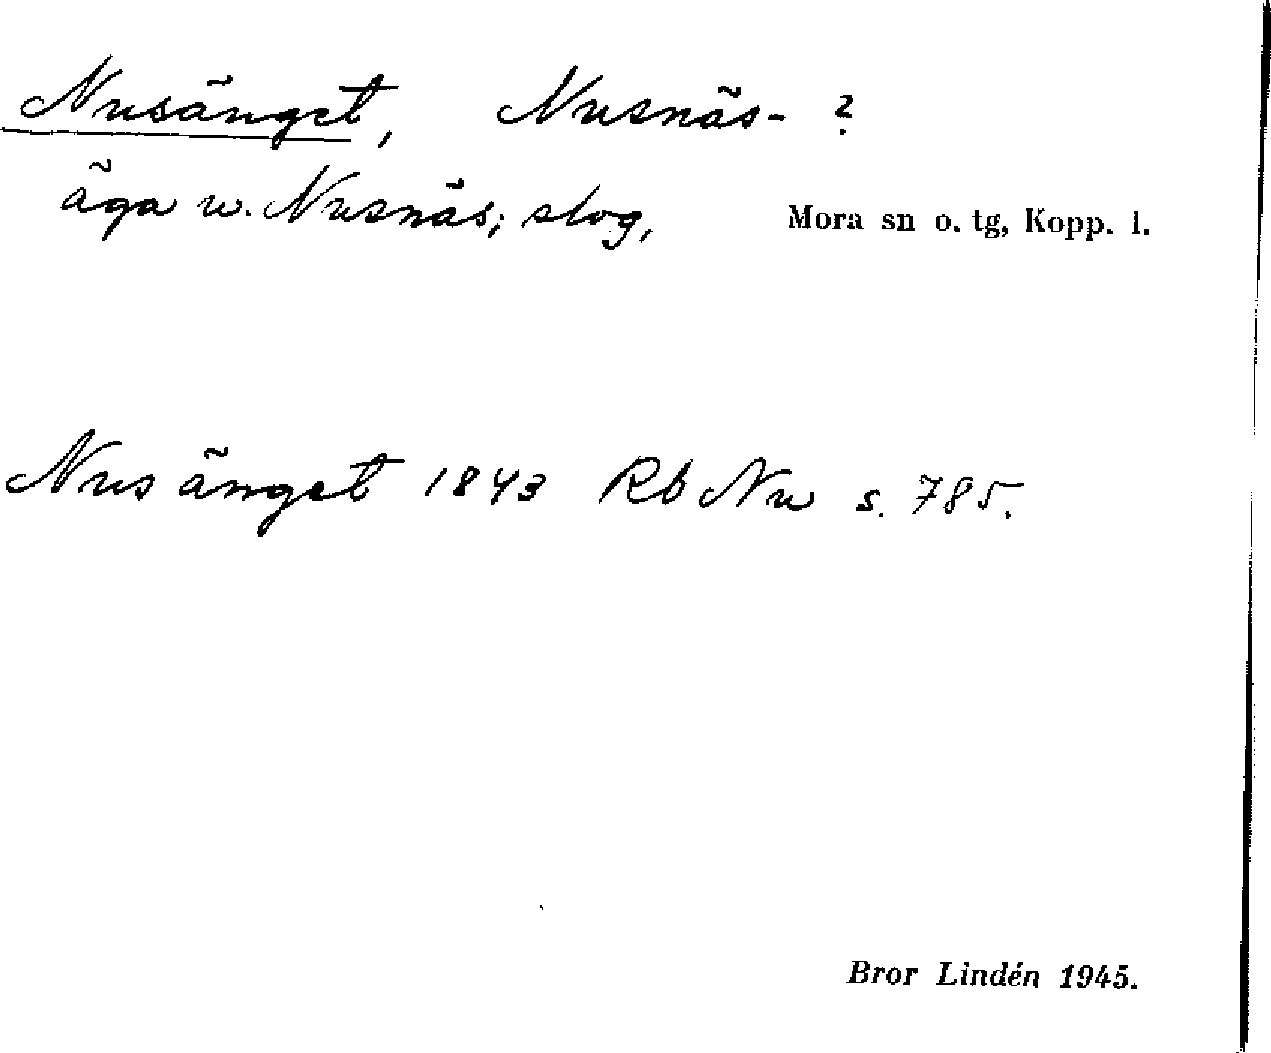 Nusänget, Nusnäs- ?
äga w. Nusnäs; slog, Mora sn o. tg, Kopp. l.
Nusänget 1843 Rb Nu s. 785.
Bror Lindén 1945.